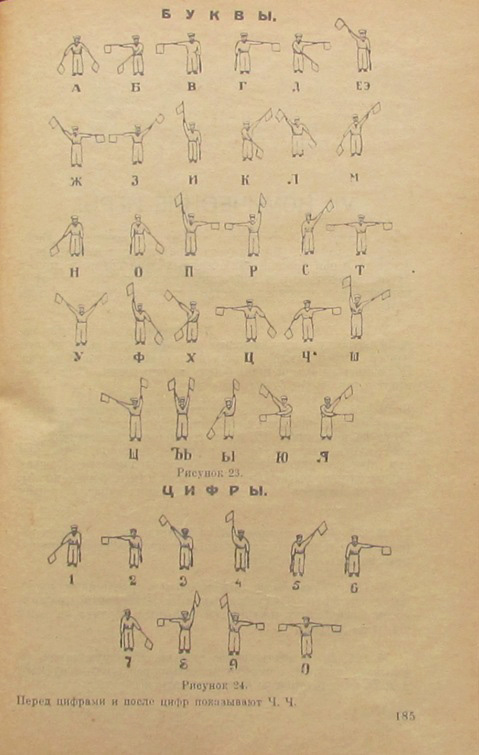 БУКВЫ.
А Б В Г Д ЕЭ
Ж З И К Л М
Н О П Р С Т
У Ф Х Ц Ч Ш
Щ ЪЬ Ы Ю Я
Рисунок 23.
ЦИФРЫ.
1 2 3 4 5 6
7 8 9 0
Рисунок 24.
Перед цифрами и после цифр показывают Ч. Ч.
185